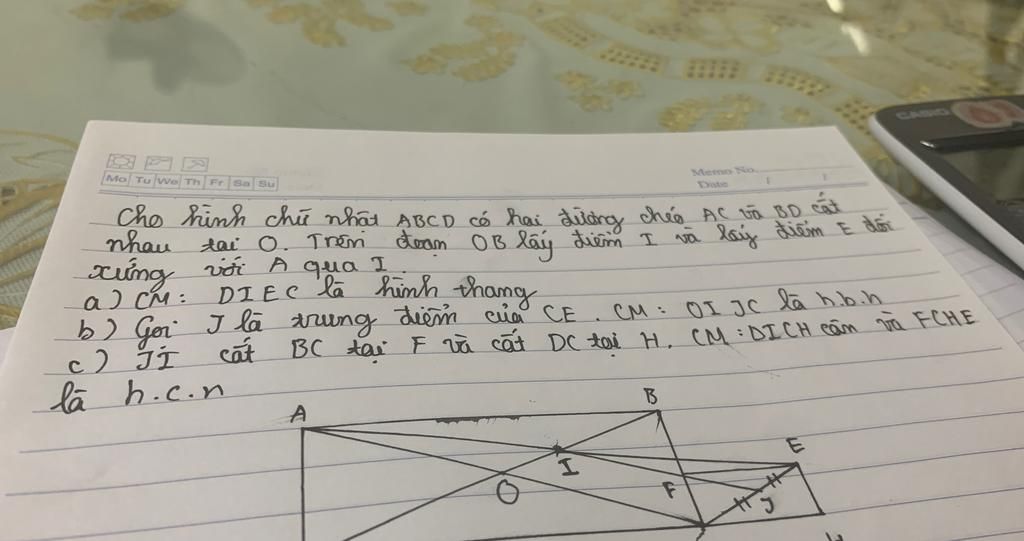 CASIO
Mo Tu We Th Fr Sa Su
Memo No.
Date / /
Cho hình chữ nhật ABCD có hai đường chéo AC và BD cắt
nhau tại O. Trên đoạn OB lấy điểm I và lấy điểm E đối
xứng với A qua I.
a) CM: DIEC là hình thang
b) Gọi J là trung điểm của CE. CM: OIJC là h.b.h
c) JI cắt BC tại F và cắt DC tại H. CM: DICH cân và FCHE
là h.c.n
A
B
I
E
O
F
J
H